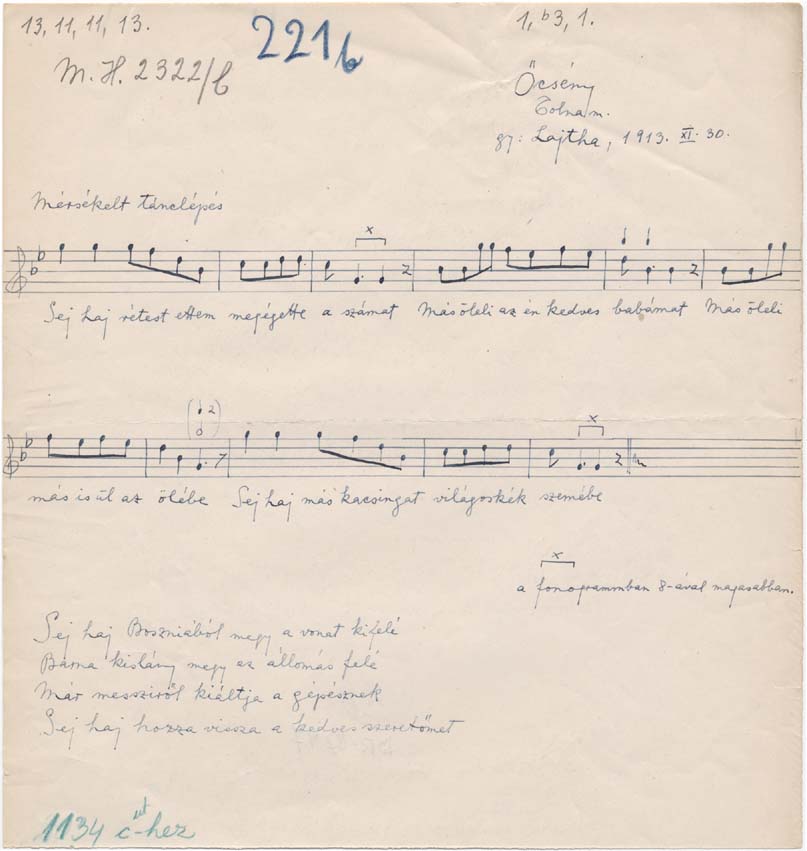 13, 11, 11, 13.
221b
1, b3, 1.
M. H. 2322/b
Őcsény
Tolna m.
gy: Lajtha, 1913. XI. 30.
Mérsékelt tánclépés
x
Sej haj rétest ettem megégette a számat Más öleli az én kedves babámat Más öleli
x
más is ül az ölébe Sej haj más kacsingat világoskék szemébe
x
a fonogrammban 8-ával magasabban.
Sej haj Boszniából megy a vonat kifelé
Barna kislány megy az állomás felé
Már messziről kiáltja a gépésznek
Sej haj hozza vissza a kedves szeretőmet
1134 c-hez